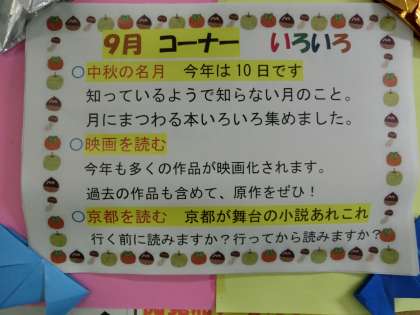 9月 コーナー いろいろ
○中秋の名月 今年は10日です
知っているようで知らない月のこと。
月にまつわる本いろいろ集めました。
○映画を読む
今年も多くの作品が映画化されます。
過去の作品も含めて、原作をぜひ！
○京都を読む 京都が舞台の小説あれこれ
行く前に読みますか？行ってから読みますか？